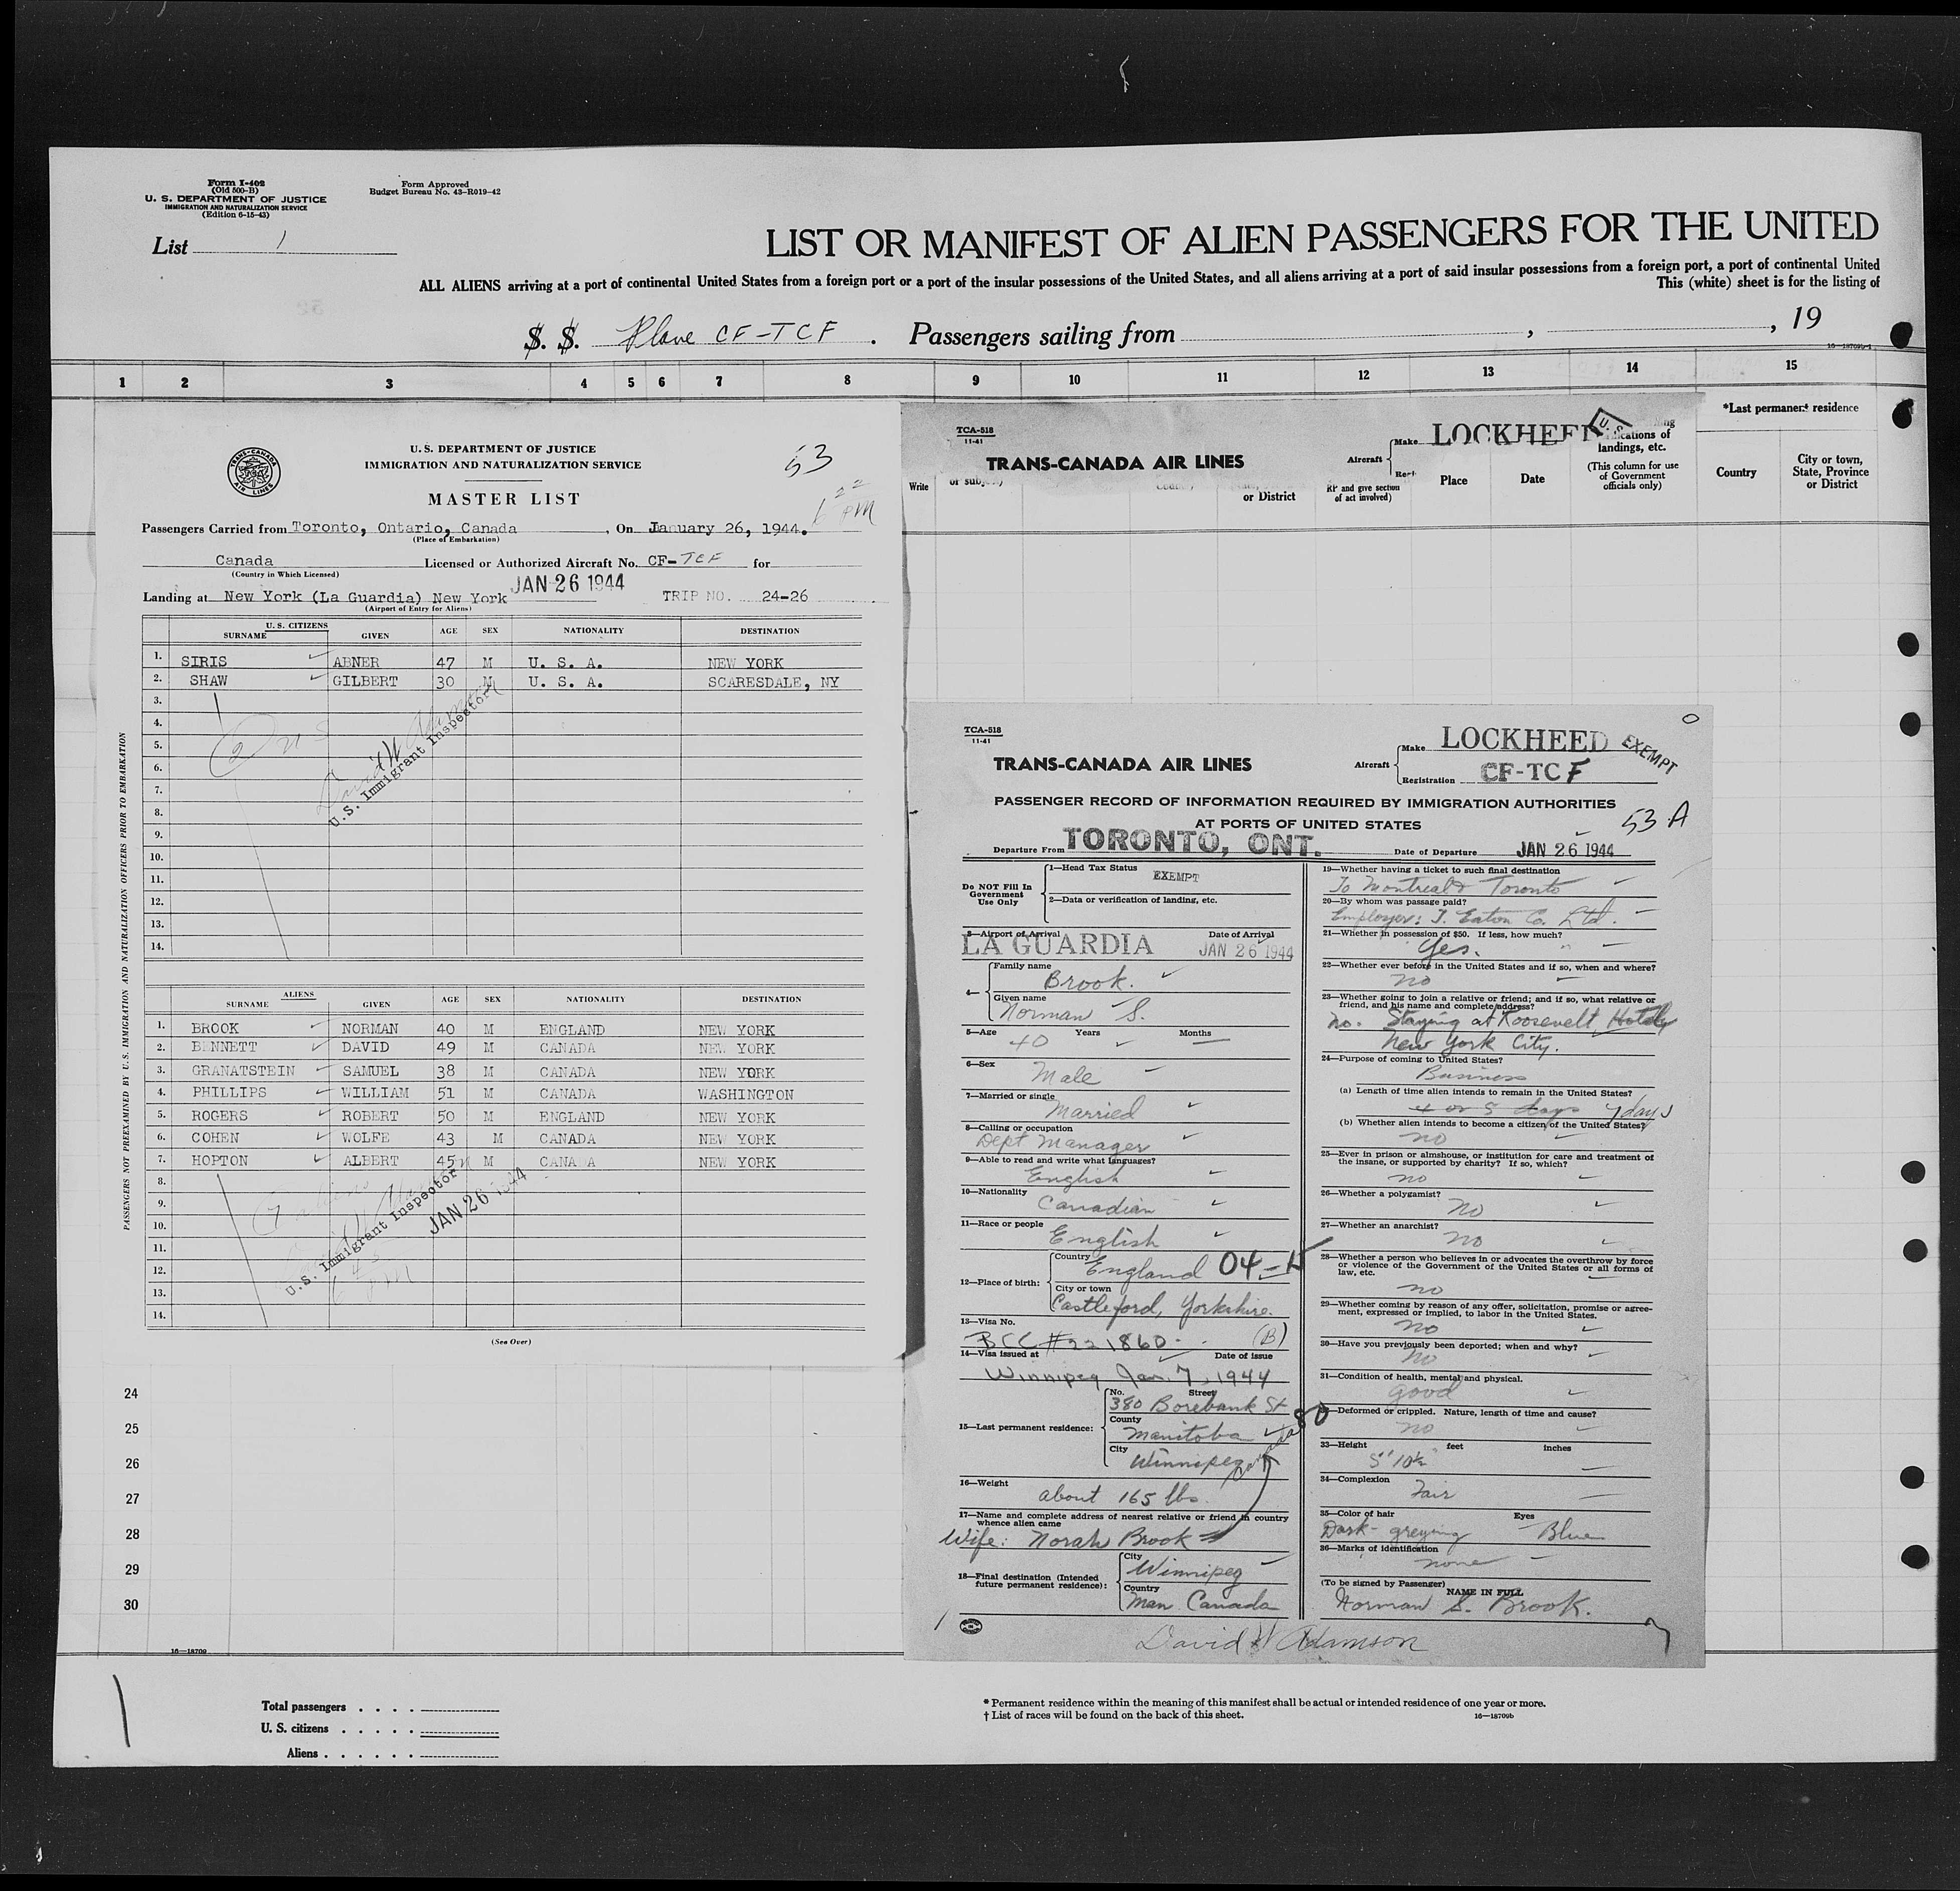 Form I-402
(Old 500-B)
U. S. DEPARTMENT OF JUSTICE
IMMIGRATION AND NATURALIZATION SERVICE
(Edition 6-15-43)
Form Approved
Budget Bureau No. 43-R019-42
List 1
LIST OR MANIFEST OF ALIEN PASSENGERS FOR THE UNITED
ALL ALIENS arriving at a port of continental United States from a foreign port or a port of the insular possessions of the United States, and all aliens arriving at a port of said insular possessions from a foreign port, a port of continental United
This (white) sheet is for the listing of
S. S. Plane CF-TCF. Passengers sailing from , , 19
16—18709b-1
1 2 3 4 5 6 7 8 9 10 11 12 13 14 15
TRANS-CANADA AIR LINES
U. S. DEPARTMENT OF JUSTICE
IMMIGRATION AND NATURALIZATION SERVICE
53
MASTER LIST
6 22 PM
Passengers Carried from Toronto, Ontario, Canada, On January 26, 1944.
(Place of Embarkation)
Canada Licensed or Authorized Aircraft No. CF-TCF for
(Country in Which Licensed)
JAN 26 1944
Landing at New York (La Guardia) New York TRIP NO. 24-26
(Airport of Entry for Aliens)
U. S. CITIZENS
SURNAME GIVEN AGE SEX NATIONALITY DESTINATION
1. SIRIS ABNER 47 M U. S. A. NEW YORK
2. SHAW GILBERT 30 M U. S. A. SCARESDALE, NY
3.
4.
5.
6.
7.
8.
9.
10.
11.
12.
13.
14.
2 US
David W Adamson
U.S. Immigrant Inspector
ALIENS
SURNAME GIVEN AGE SEX NATIONALITY DESTINATION
1. BROOK NORMAN 40 M ENGLAND NEW YORK
2. BENNETT DAVID 49 M CANADA NEW YORK
3. GRANATSTEIN SAMUEL 38 M CANADA NEW YORK
4. PHILLIPS WILLIAM 51 M CANADA WASHINGTON
5. ROGERS ROBERT 50 M ENGLAND NEW YORK
6. COHEN WOLFE 43 M CANADA NEW YORK
7. HOPTON ALBERT 45 M CANADA NEW YORK
8.
9.
10.
11.
12.
13.
14.
7 Aliens
U.S. Immigrant Inspector
JAN 26 1944
6 45 PM
(See Over)
PASSENGERS NOT PREEXAMINED BY U. S. IMMIGRATION AND NATURALIZATION OFFICERS PRIOR TO EMBARKATION
24
25
26
27
28
29
30
16—18709
Total passengers . . . .
U. S. citizens . . . . .
Aliens . . . . . .
TCA-518
11-41
TRANS-CANADA AIR LINES
Aircraft
Make LOCKHEED
U. S.
Write
or District
RP and give section
of act involved)
Place
Date
landings, etc.
(This column for use
of Government
officials only)
*Last permanent residence
Country
City or town,
State, Province
or District
TCA-518
11-41
TRANS-CANADA AIR LINES
Aircraft
Make LOCKHEED
Registration CF-TCF
EXEMPT
PASSENGER RECORD OF INFORMATION REQUIRED BY IMMIGRATION AUTHORITIES
AT PORTS OF UNITED STATES
53 A
Departure From TORONTO, ONT. Date of Departure JAN 26 1944
Do NOT Fill In
Government
Use Only
1—Head Tax Status EXEMPT
2—Data or verification of landing, etc.
3—Airport of Arrival Date of Arrival
LA GUARDIA JAN 26 1944
4— Family name
Brook.
Given name
Norman S.
5—Age Years Months
40 —
6—Sex
Male
7—Married or single
Married
8—Calling or occupation
Dept Manager
9—Able to read and write what languages?
English
10—Nationality
Canadian
11—Race or people
English
12—Place of birth: Country
England 04-15
City or town
Castleford, Yorkshire.
13—Visa No.
BCC #221860 (B)
14—Visa issued at Date of issue
Winnipeg Jan. 7, 1944
15—Last permanent residence: No. Street
380 Borebank St
County
Manitoba
City
Winnipeg
Canada 80
16—Weight
about 165 lbs.
17—Name and complete address of nearest relative or friend in country
whence alien came
Wife: Norah Brook
18—Final destination (Intended
future permanent residence):
City
Winnipeg
Country
Man Canada
19—Whether having a ticket to such final destination
To Montreal & Toronto
20—By whom was passage paid?
Employer: T. Eaton Co. Ltd.
21—Whether in possession of $50. If less, how much?
Yes.
22—Whether ever before in the United States and if so, when and where?
no
23—Whether going to join a relative or friend; and if so, what relative or
friend, and his name and complete address?
no. Staying at Roosevelt, Hotel
New York City.
24—Purpose of coming to United States?
Business
(a) Length of time alien intends to remain in the United States?
4 or 5 days 7 days
(b) Whether alien intends to become a citizen of the United States?
no
25—Ever in prison or almshouse, or institution for care and treatment of
the insane, or supported by charity? If so, which?
no
26—Whether a polygamist?
No
27—Whether an anarchist?
no
28—Whether a person who believes in or advocates the overthrow by force
or violence of the Government of the United States or all forms of
law, etc.
no
29—Whether coming by reason of any offer, solicitation, promise or agree-
ment, expressed or implied, to labor in the United States.
No
30—Have you previously been deported; when and why?
No
31—Condition of health, mental and physical.
good
32—Deformed or crippled. Nature, length of time and cause?
no
33—Height feet inches
5' 10½"
34—Complexion
Fair
35—Color of hair Eyes
Dark - greying Blue
36—Marks of identification
none
(To be signed by Passenger)
NAME IN FULL
Norman S. Brook.
David W Adamson
* Permanent residence within the meaning of this manifest shall be actual or intended residence of one year or more.
† List of races will be found on the back of this sheet.
16—18709b